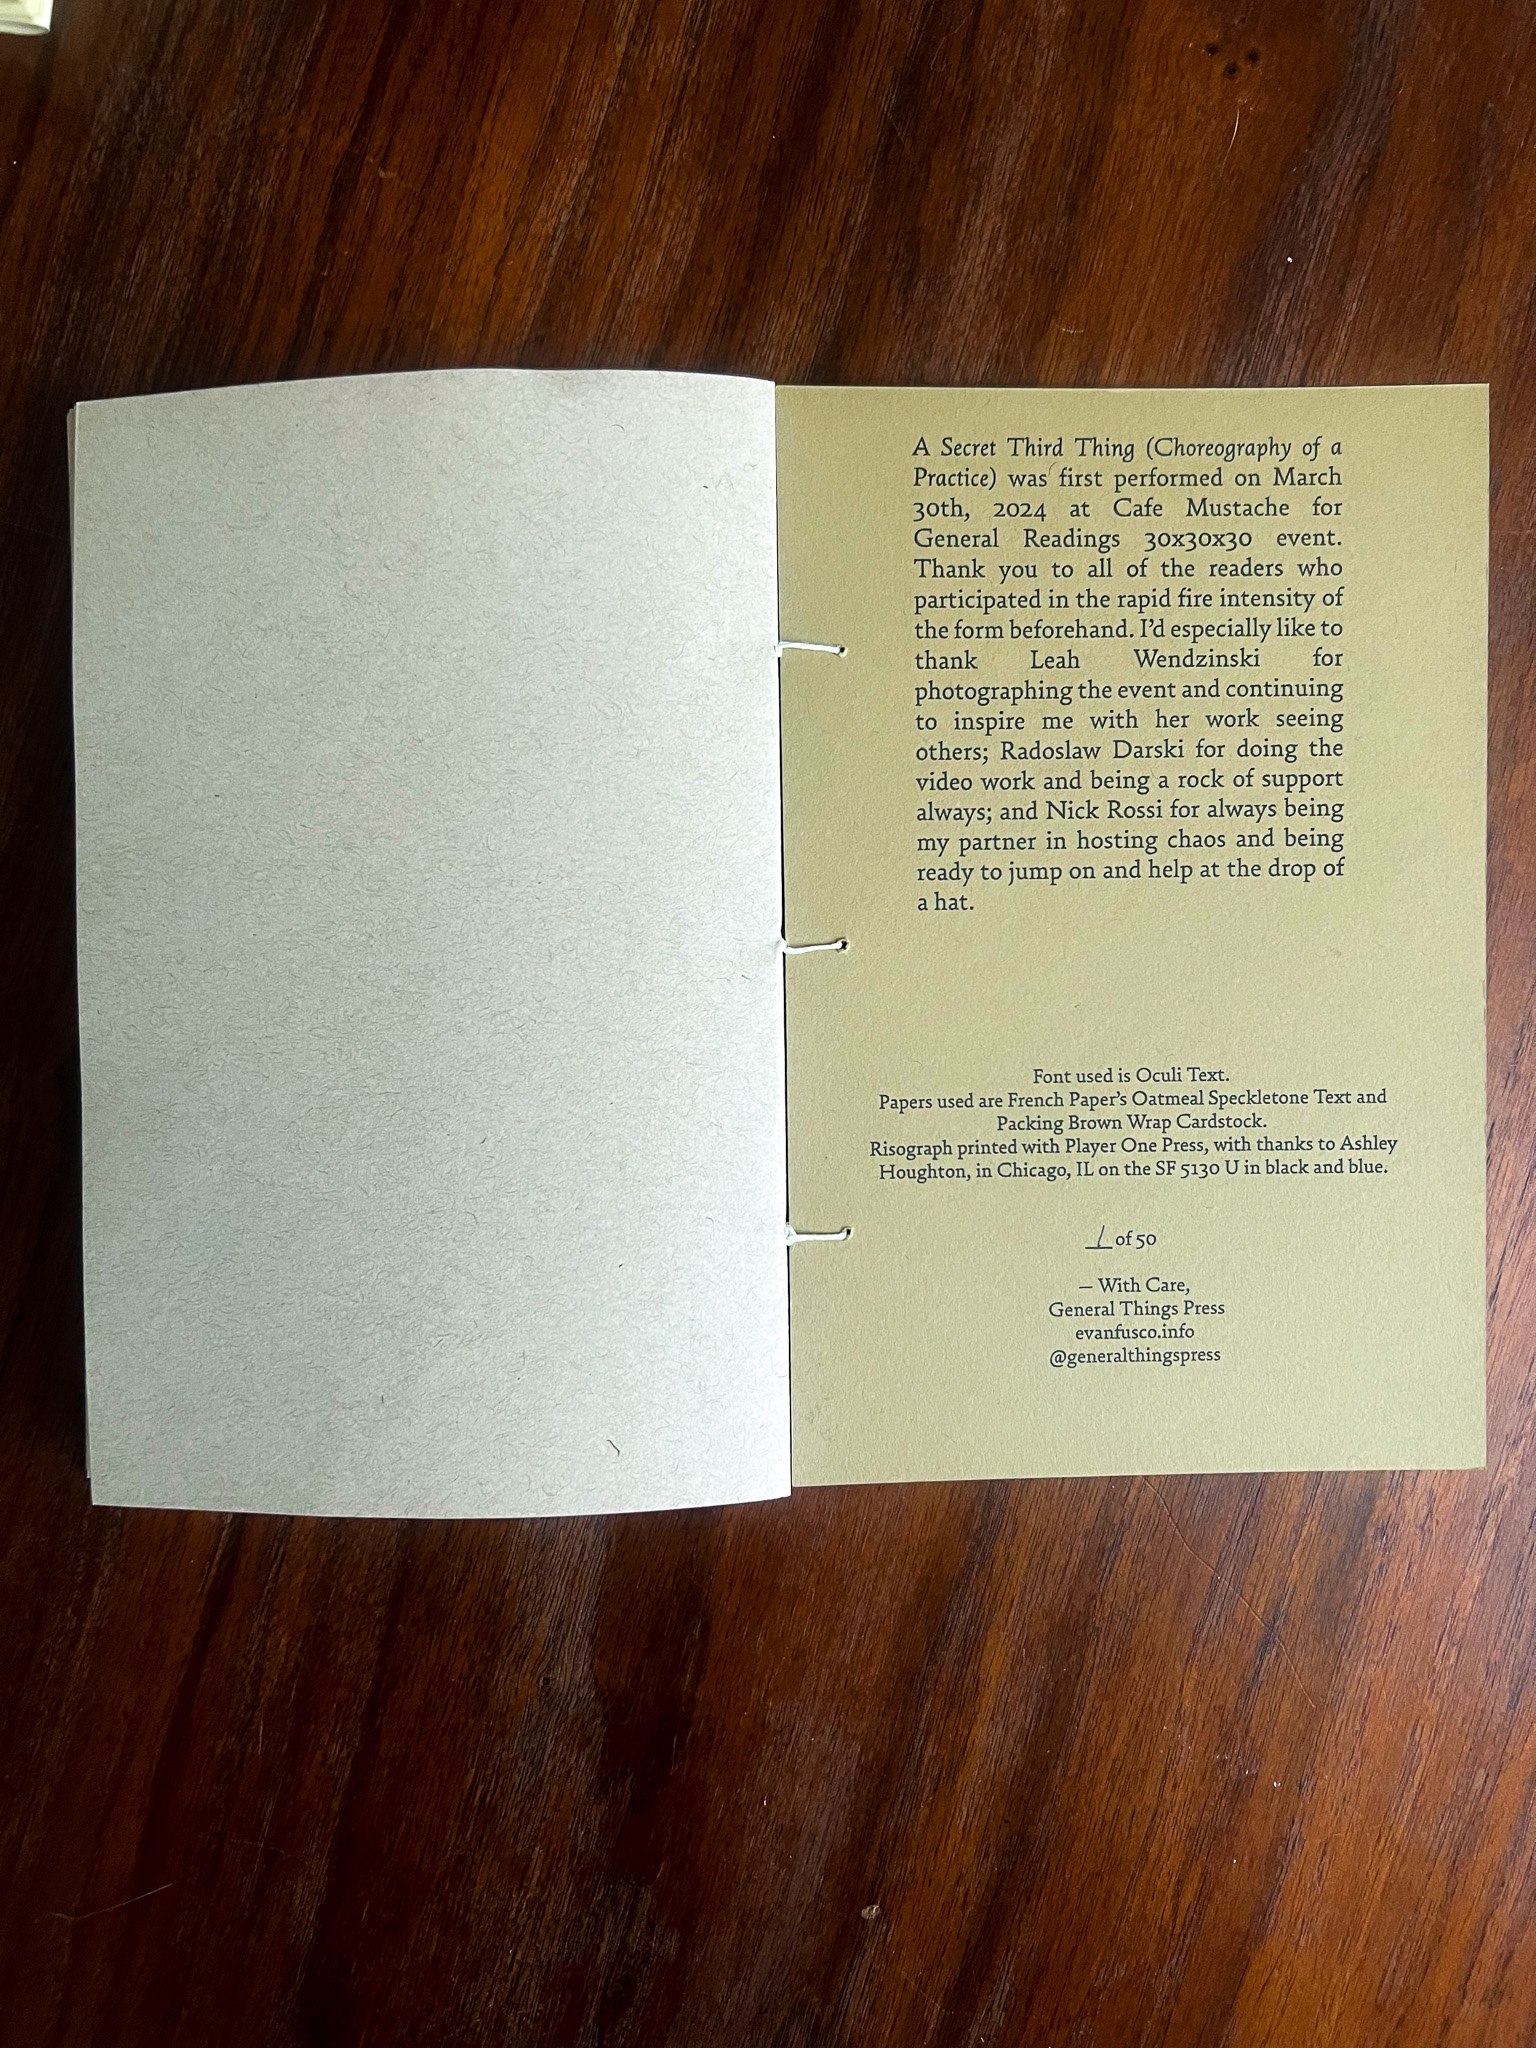 A Secret Third Thing (Choreography of a
Practice) was first performed on March
30th, 2024 at Cafe Mustache for
General Readings 30x30x30 event.
Thank you to all of the readers who
participated in the rapid fire intensity of
the form beforehand. I’d especially like to
thank Leah Wendzinski for
photographing the event and continuing
to inspire me with her work seeing
others; Radoslaw Darski for doing the
video work and being a rock of support
always; and Nick Rossi for always being
my partner in hosting chaos and being
ready to jump on and help at the drop of
a hat.
Font used is Oculi Text.
Papers used are French Paper’s Oatmeal Speckletone Text and
Packing Brown Wrap Cardstock.
Risograph printed with Player One Press, with thanks to Ashley
Houghton, in Chicago, IL on the SF 5130 U in black and blue.
1 of 50
— With Care,
General Things Press
evanfusco.info
@generalthingspress